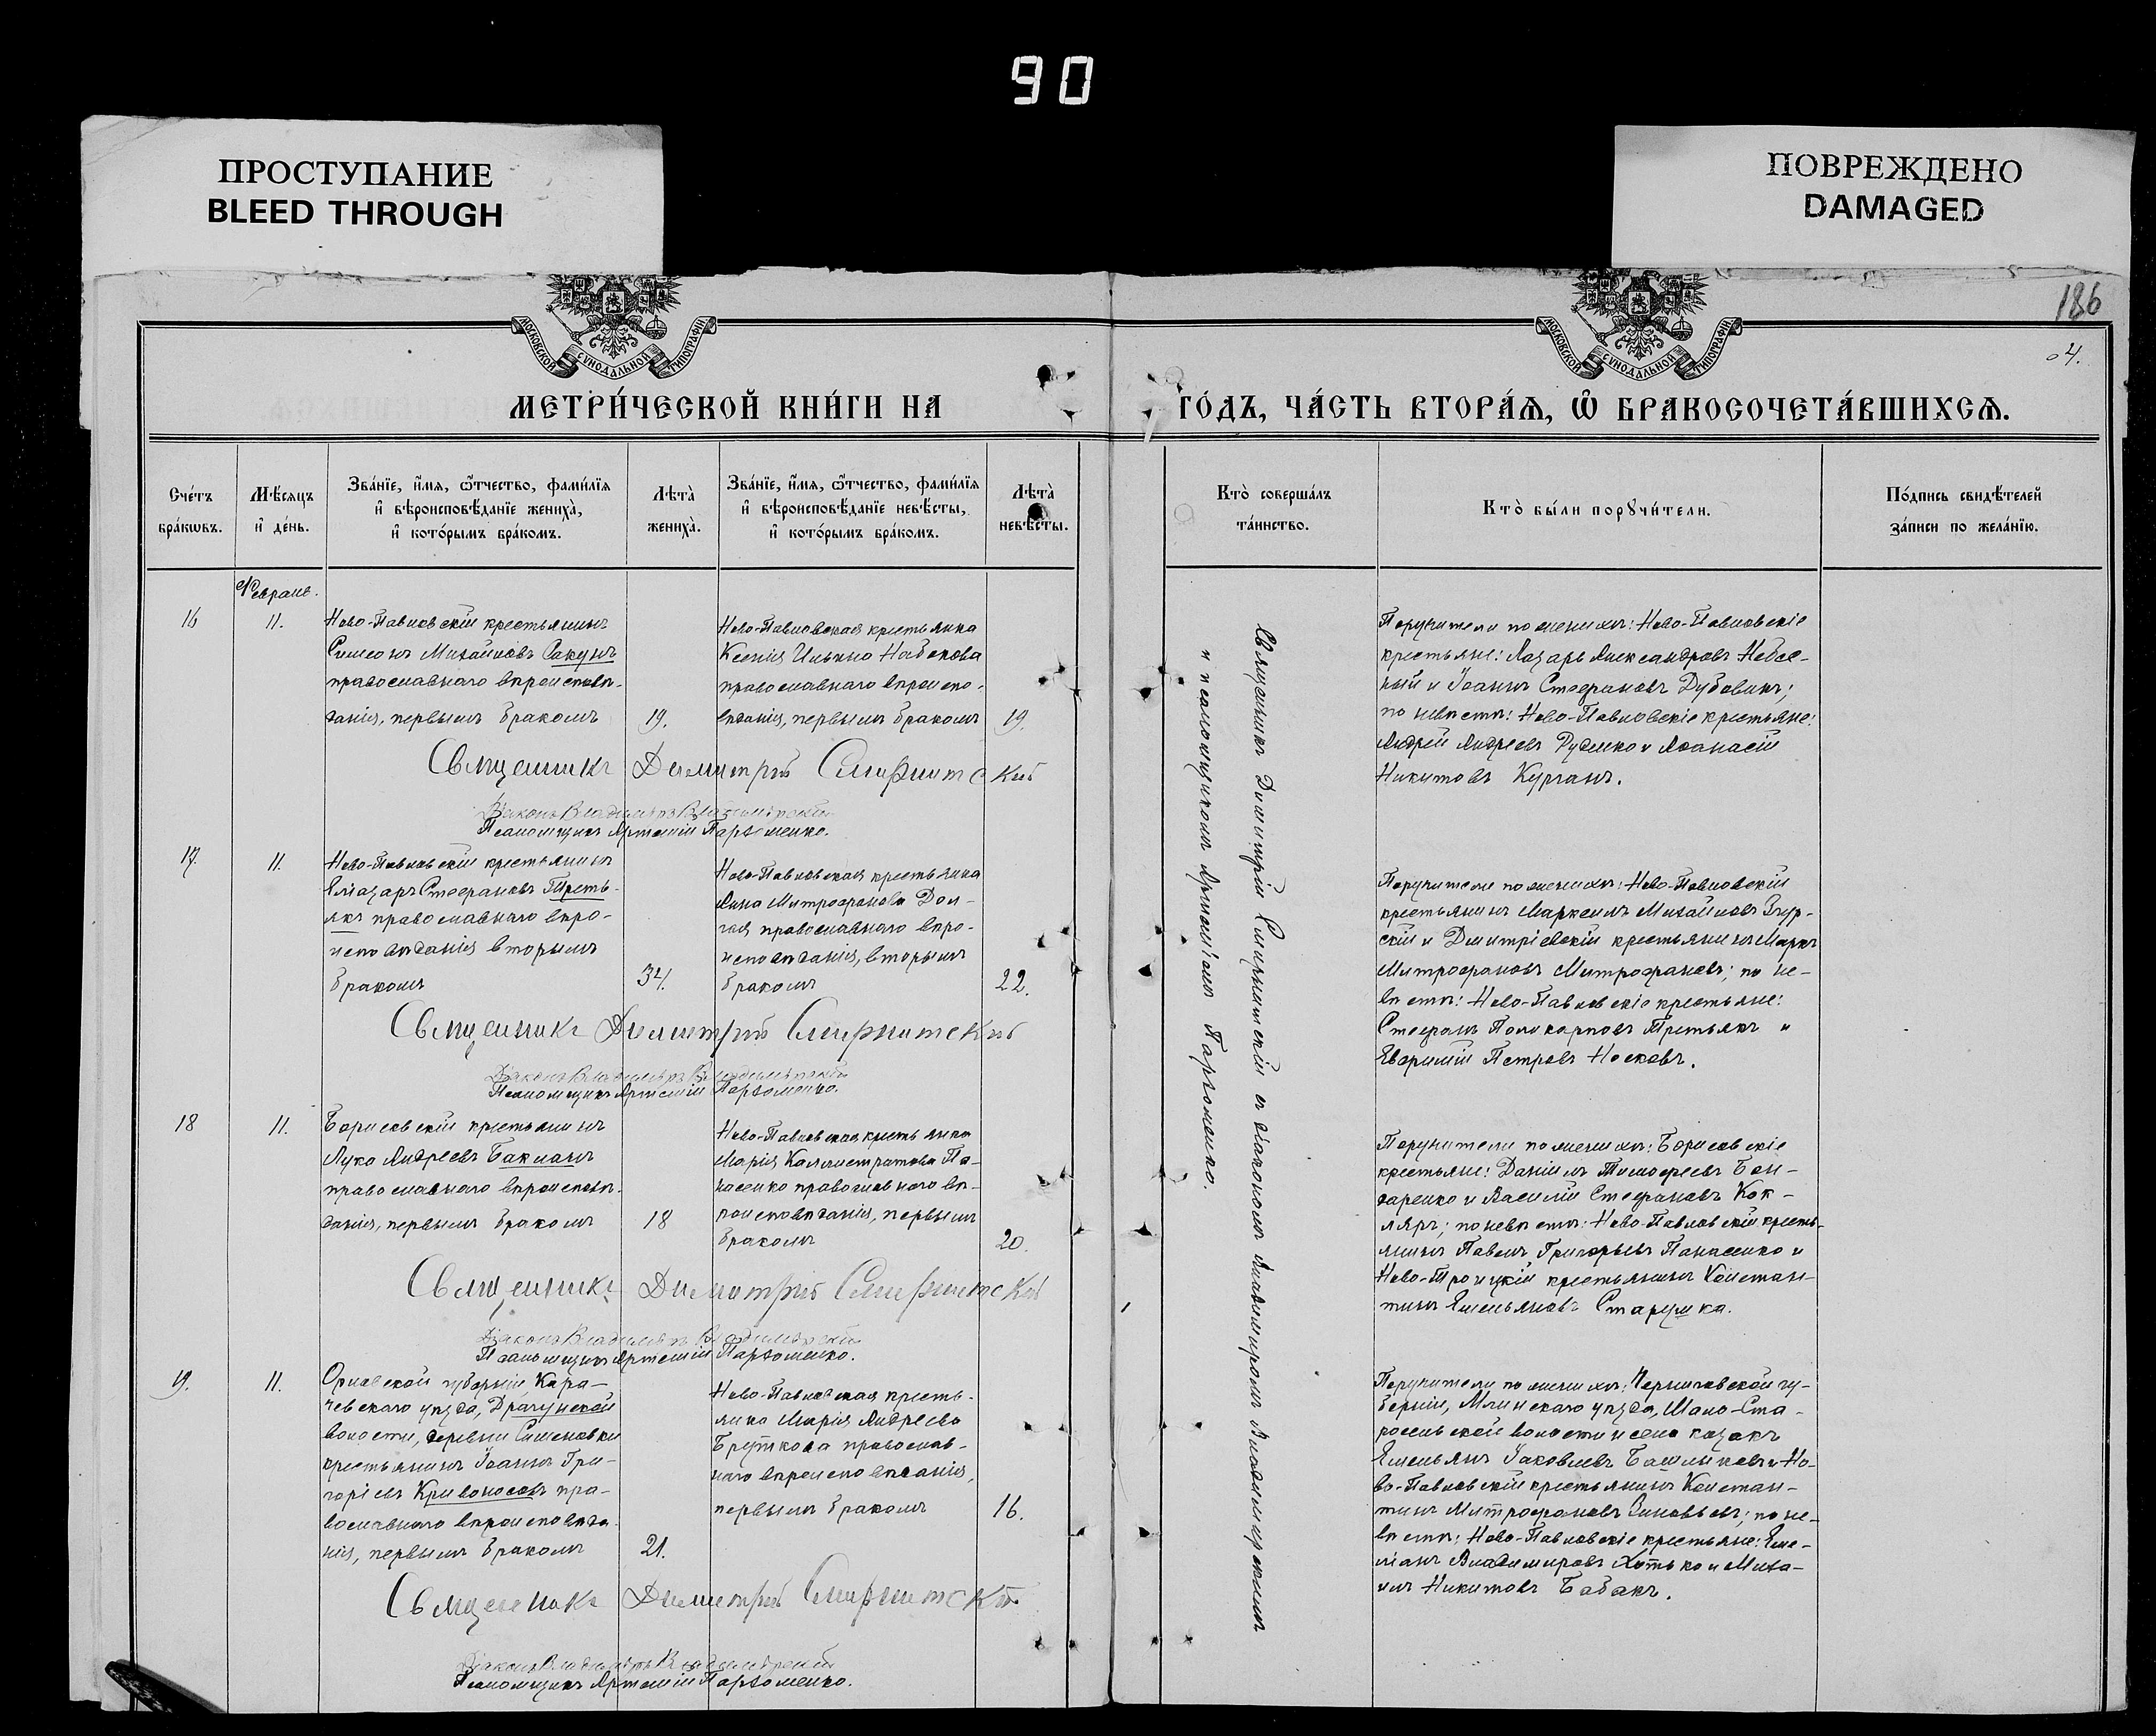 90
ПРОСТУПАНИЕ
BLEED THROUGH
ПОВРЕЖДЕНО
DAMAGED
МОСКОВСКОЙ СУНОДАЛЬНОЙ ТИПОГРАФІИ
МОСКОВСКОЙ СУНОДАЛЬНОЙ ТИПОГРАФІИ
186
МЕТРИ́ЧЕСКОЙ КНИ́ГИ НА
ГО́ДЪ, ЧА́СТЬ ВТОРА́Ѧ, Ѡ҆ БРАКОСОЧЕТА́ВШИХСѦ.
Сче́тъ
бра́кѡвъ.
Мѣ́сяцъ
и҆ де́нь.
Зва́нїе, и҆́мя, ѻ҆́тчество, фами́лїя
и҆ вѣроисповѣ́данїе жениха̀,
и҆ кото́рымъ бра́комъ.
Лѣ́та̀
жениха̀.
Зва́нїе, и҆́мя, ѻ҆́тчество, фами́лїя
и҆ вѣроисповѣ́данїе невѣ́сты,
и҆ кото́рымъ бра́комъ.
Лѣ́та̀
невѣ́сты.
Кто̀ соверша́лъ
та́инство.
Кто̀ бы́ли порꙋчи́тели.
По́дпись свидѣ́телей
за́писи по жела́нїю.
Февраль.
16
11.
Ново-Павловскій крестьянинъ
Симеонъ Михайловъ Сакунъ
православнаго вѣроисповѣ-
данія, первымъ бракомъ
19.
Ново-Павловская крестьянка
Ксенія Ильина Набокова
православнаго вѣроиспо-
вѣданія, первымъ бракомъ
19.
Поручители по женихѣ: Ново-Павловскіе
крестьяне: Лазарь Александровъ Небес-
ный и Іоаннъ Стефановъ Дубовикъ;
по невѣстѣ: Ново-Павловскіе крестьяне:
Андрей Андреевъ Руденко и Аѳанасій
Никитовъ Курганъ.
Священникъ Димитрій Смирнитскій
Діаконъ Владиміръ Владимірскій
Псаломщикъ Артемій Пархоменко.
17.
11.
Ново-Павловскій крестьянинъ
Елеазаръ Стефановъ Треть-
якъ православнаго вѣро-
исповѣданія вторымъ
бракомъ
34.
Ново-Павловская крестьянка
Анна Митрофанова Дол-
гая православнаго вѣро-
исповѣданія, вторымъ
бракомъ
22.
Поручители по женихѣ: Ново-Павловскій
крестьянинъ Маркелъ Михайловъ Згур-
скій и Дмитріевскій крестьянинъ Маркъ
Митрофановъ Митрофановъ; по не-
вѣстѣ: Ново-Павловскіе крестьяне:
Стефанъ Поликарповъ Третьякъ и
Евфимій Петровъ Носковъ.
Священникъ Димитрій Смирнитскій
Діаконъ Владиміръ Владимірскій
Псаломщикъ Артемій Пархоменко.
18
11.
Борисовскій крестьянинъ
Лука Андреевъ Бакланъ
православнаго вѣроисповѣ-
данія, первымъ бракомъ
18
Ново-Павловская крестьянка
Марія Каллистратова Па-
насенко православнаго вѣ-
роисповѣданія, первымъ
бракомъ
20.
Поручители по женихѣ: Борисовскіе
крестьяне: Даніилъ Тимофеевъ Бон-
даренко и Василій Стефановъ Кок-
ляръ; по невѣстѣ: Ново-Павловскій кресть-
янинъ Павелъ Григорьевъ Панасенко и
Ново-Троицкій крестьянинъ Констан-
тинъ Емельяновъ Старушка.
Священникъ Димитрій Смирнитскій
Діаконъ Владиміръ Владимірскій
Псаломщикъ Артемій Пархоменко.
19.
11.
Орловской губерніи, Кара-
чевскаго уѣзда, Драгунской
волости, деревни Сименовки
крестьянинъ Іоаннъ Гри-
горіевъ Кривоносовъ пра-
вославнаго вѣроисповѣда-
нія, первымъ бракомъ
21.
Ново-Павловская кресть-
янка Марія Андреева
Бруткова православ-
наго вѣроисповѣданія,
первымъ бракомъ
16.
Поручители по женихѣ: Черниговской гу-
берніи, Мглинскаго уѣзда, Мало-Ста-
росельской волости и села козакъ
Емельянъ Іаковлевъ Башлыковъ и Но-
во-Павловскій крестьянинъ Констан-
тинъ Митрофановъ Зиновьевъ; по не-
вѣстѣ: Ново-Павловскіе крестьяне: Еме-
ліанъ Владимировъ Хотько и Миха-
илъ Никитовъ Бабакъ.
Священникъ Димитрій Смирнитскій
Діаконъ Владиміръ Владимірскій
Псаломщикъ Артемій Пархоменко.
Священникъ Димитрій Смирнитскій съ діакономъ Владимиромъ Владимирскимъ
и псаломщикомъ Артеміемъ Пархоменко.